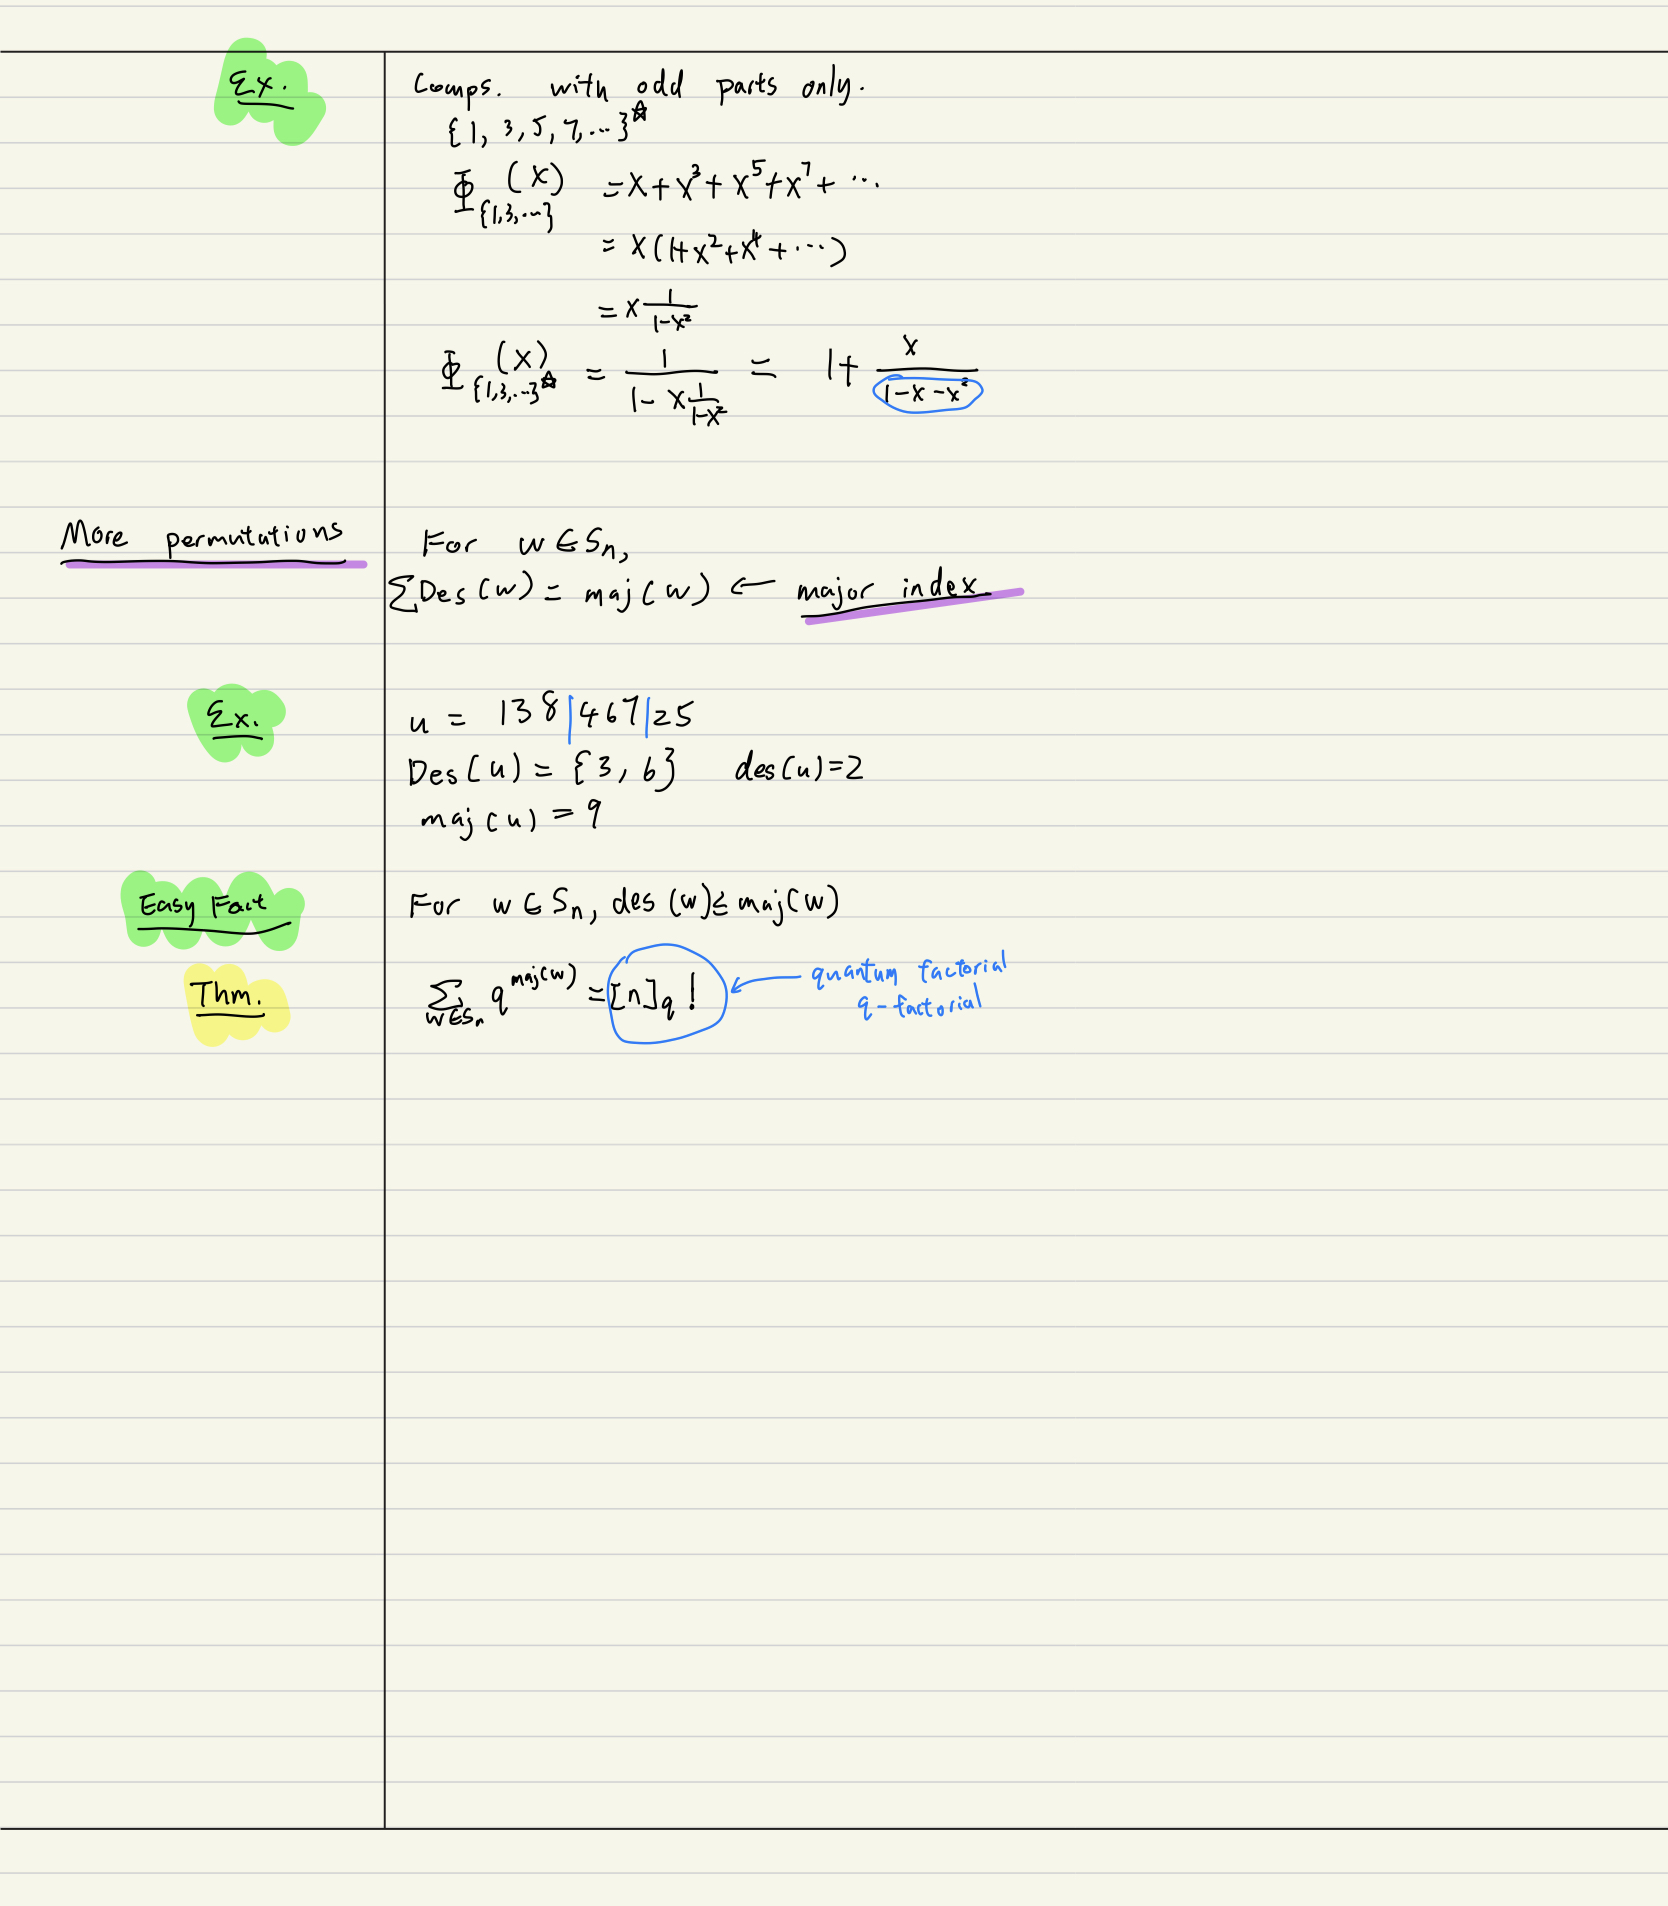 Ex.
Comps. with odd parts only.
{1, 3, 5, 7, ...}*
Φ_{1,3,...}(x) = x + x³ + x⁵ + x⁷ + ...
= x(1 + x² + x⁴ + ...)
= x 1/(1-x²)
Φ_{1,3,...}*(x) = 1/(1 - x 1/(1-x²)) = 1 + x/(1-x-x²)
More permutations
For w ∈ Sₙ,
∑Des(w) = maj(w) ← major index
Ex.
u = 138|467|25
Des(u) = {3, 6} des(u)=2
maj(u) = 9
Easy Fact
For w ∈ Sₙ, des(w) ≤ maj(w)
Thm.
∑_{w∈Sₙ} q^{maj(w)} = [n]_q ! ← quantum factorial
q-factorial